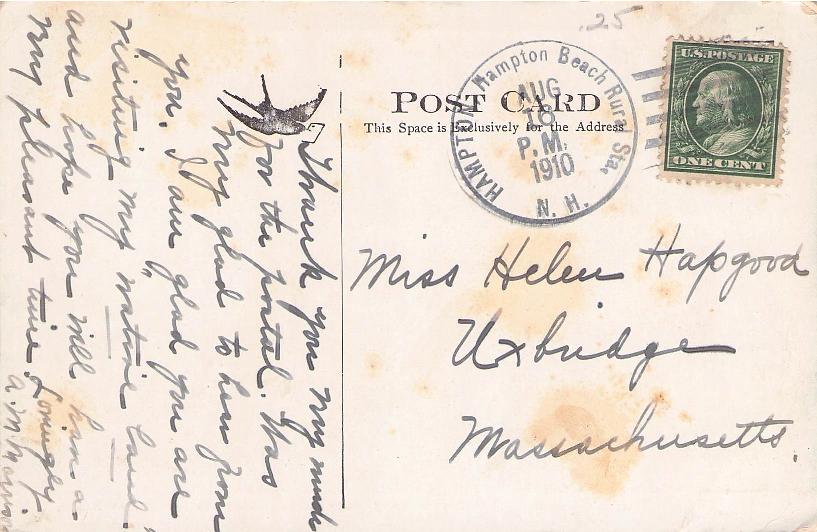 .25
POST CARD
This Space is Exclusively for the Address
HAMPTON Hampton Beach Rural Sta. N. H.
AUG
P.M.
1910
U.S. POSTAGE
ONE CENT
Miss Helen Hapgood
Uxbridge
Massachusetts.
Thank you very much
for the postal. Was
very glad to hear from
you. I am glad you are
visiting my "native land"
and hope you will have a
very pleasant time. Lovingly
A. M.